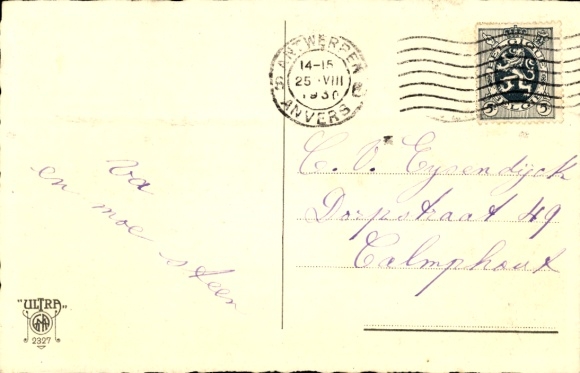 ANTWERPEN
14-15
25 VIII
1930
ANVERS
BELGIQUE
BELGIË
5
5
C. V. Eysendijck
Dorpstraat 49
Calmphout
Va
en moe steer
"ULTRA"
2327